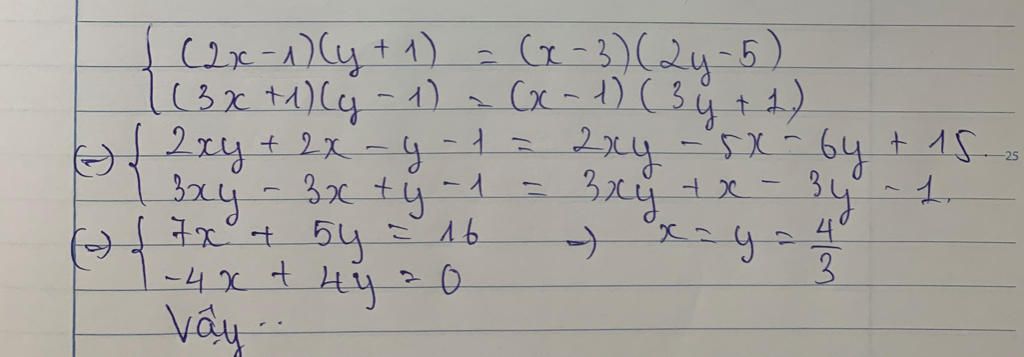 { (2x-1)(y+1) = (x-3)(2y-5)
(3x+1)(y-1) = (x-1)(3y+1)
(=) { 2xy + 2x - y - 1 = 2xy - 5x - 6y + 15.
25
3xy - 3x + y - 1 = 3xy + x - 3y - 1.
(=) { 7x + 5y = 16 => x = y = 4/3
-4x + 4y = 0
Vậy ..